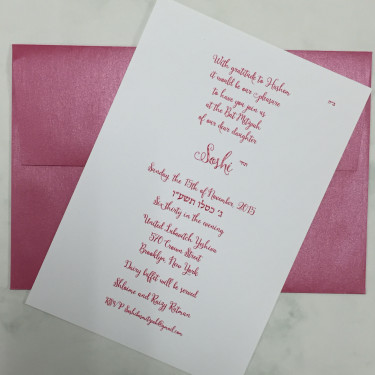 ב״ה
With gratitude to Hashem
it would be our pleasure
to have you join us
at the Bat Mitzvah
of our dear daughter
Soshi תחי׳
Sunday the 15th of November, 2015
ג׳ כסלו תשע״ו
Six thirty in the evening
United Lubavitch Yeshiva
570 Crown Street
Brooklyn, New York
Dairy buffet will be served
Shloime and Raizy Rotman